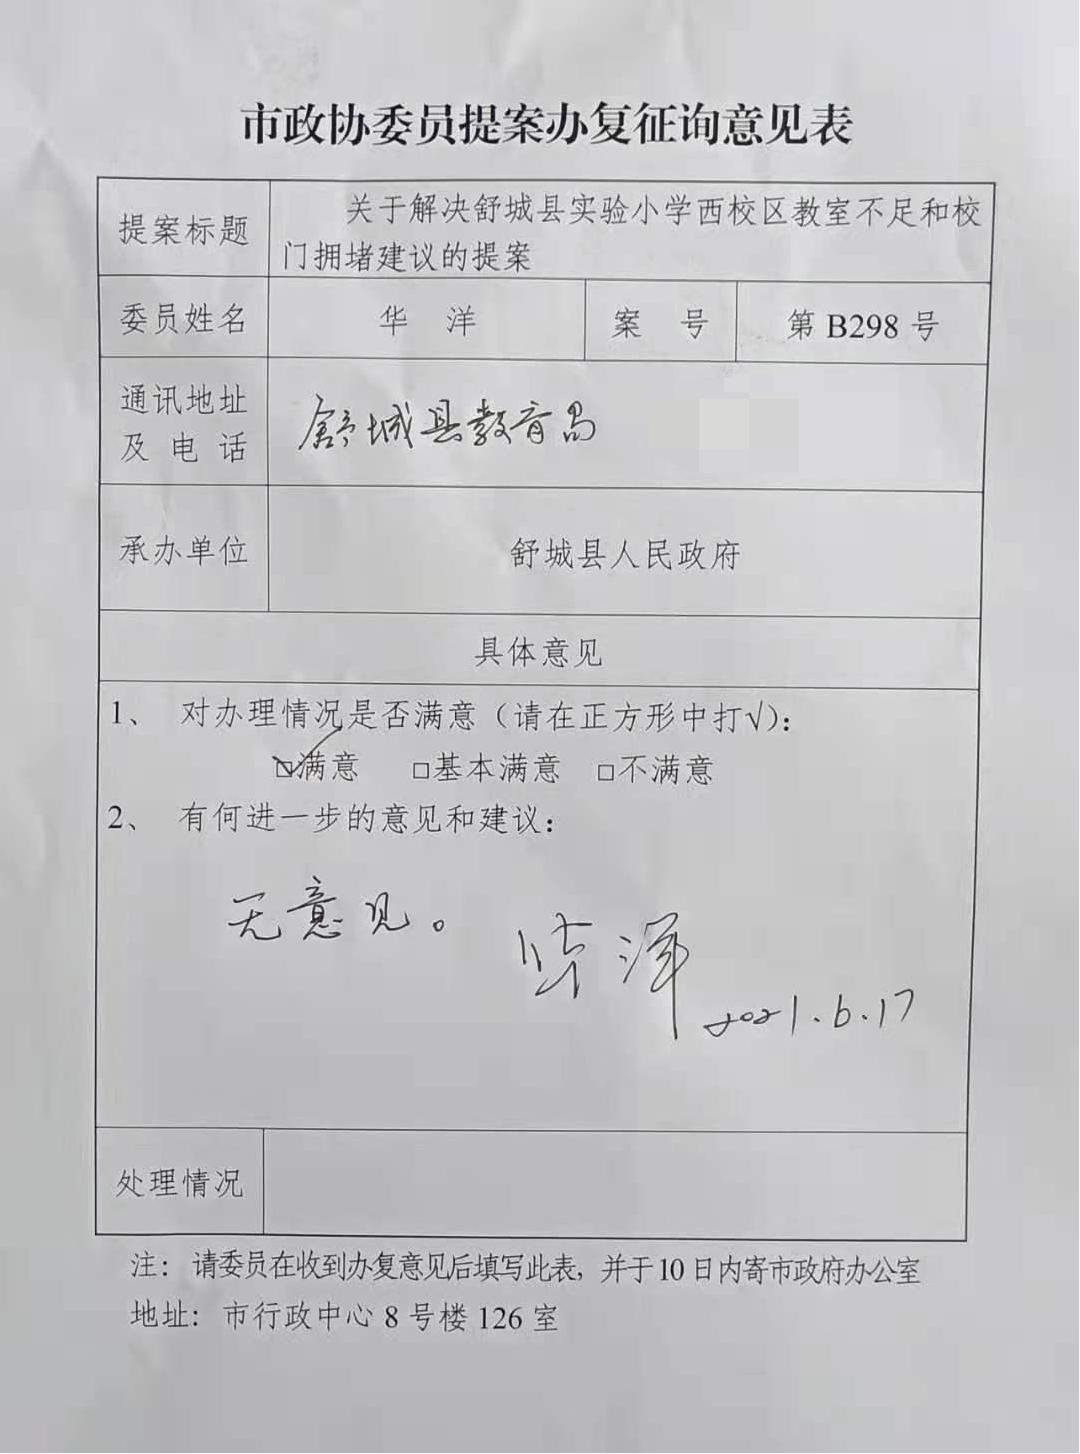 市政协委员提案办复征询意见表
提案标题
关于解决舒城县实验小学西校区教室不足和校
门拥堵建议的提案
委员姓名 华 洋 案 号 第 B298 号
通讯地址
及 电 话
舒城县教育局
承办单位 舒城县人民政府
具体意见
1、 对办理情况是否满意（请在正方形中打√）：
☑满意 □基本满意 □不满意
2、 有何进一步的意见和建议：
无意见。
华洋
2021.6.17
处理情况
注： 请委员在收到办复意见后填写此表，并于 10 日内寄市政府办公室
地址： 市行政中心 8 号楼 126 室